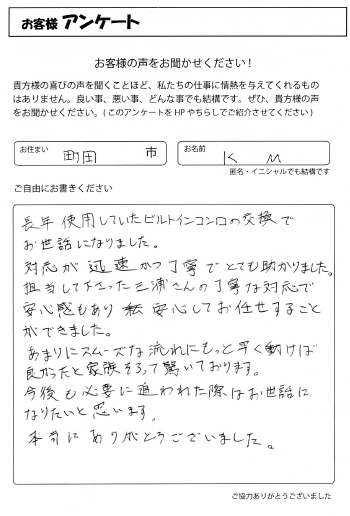 お客様 アンケート
お客様の声をお聞かせください！
貴方様の喜びの声を聞くことほど、私たちの仕事に情熱を与えてくれるもの
はありません。良い事、悪い事、どんな事でも結構です。ぜひ、貴方様の声
をお聞かせください。(このアンケートを HP やちらしでご紹介させてください)
お住まい 町田 市 お名前 K M
匿名・イニシャルでも結構です
ご自由にお書きください
長年使用していたビルトインコンロの交換で
お世話になりました。
対応が迅速かつ丁寧でとても助かりました。
担当して下さった三浦さんの丁寧な対応で
安心感もあり 安心してお任せすること
ができました。
あまりにスムーズな流れにもっと早く動けば
良かったと家族そろって驚いております。
今後も必要に追われた際はお世話に
なりたいと思います。
本当にありがとうございました。
ご協力ありがとうございました